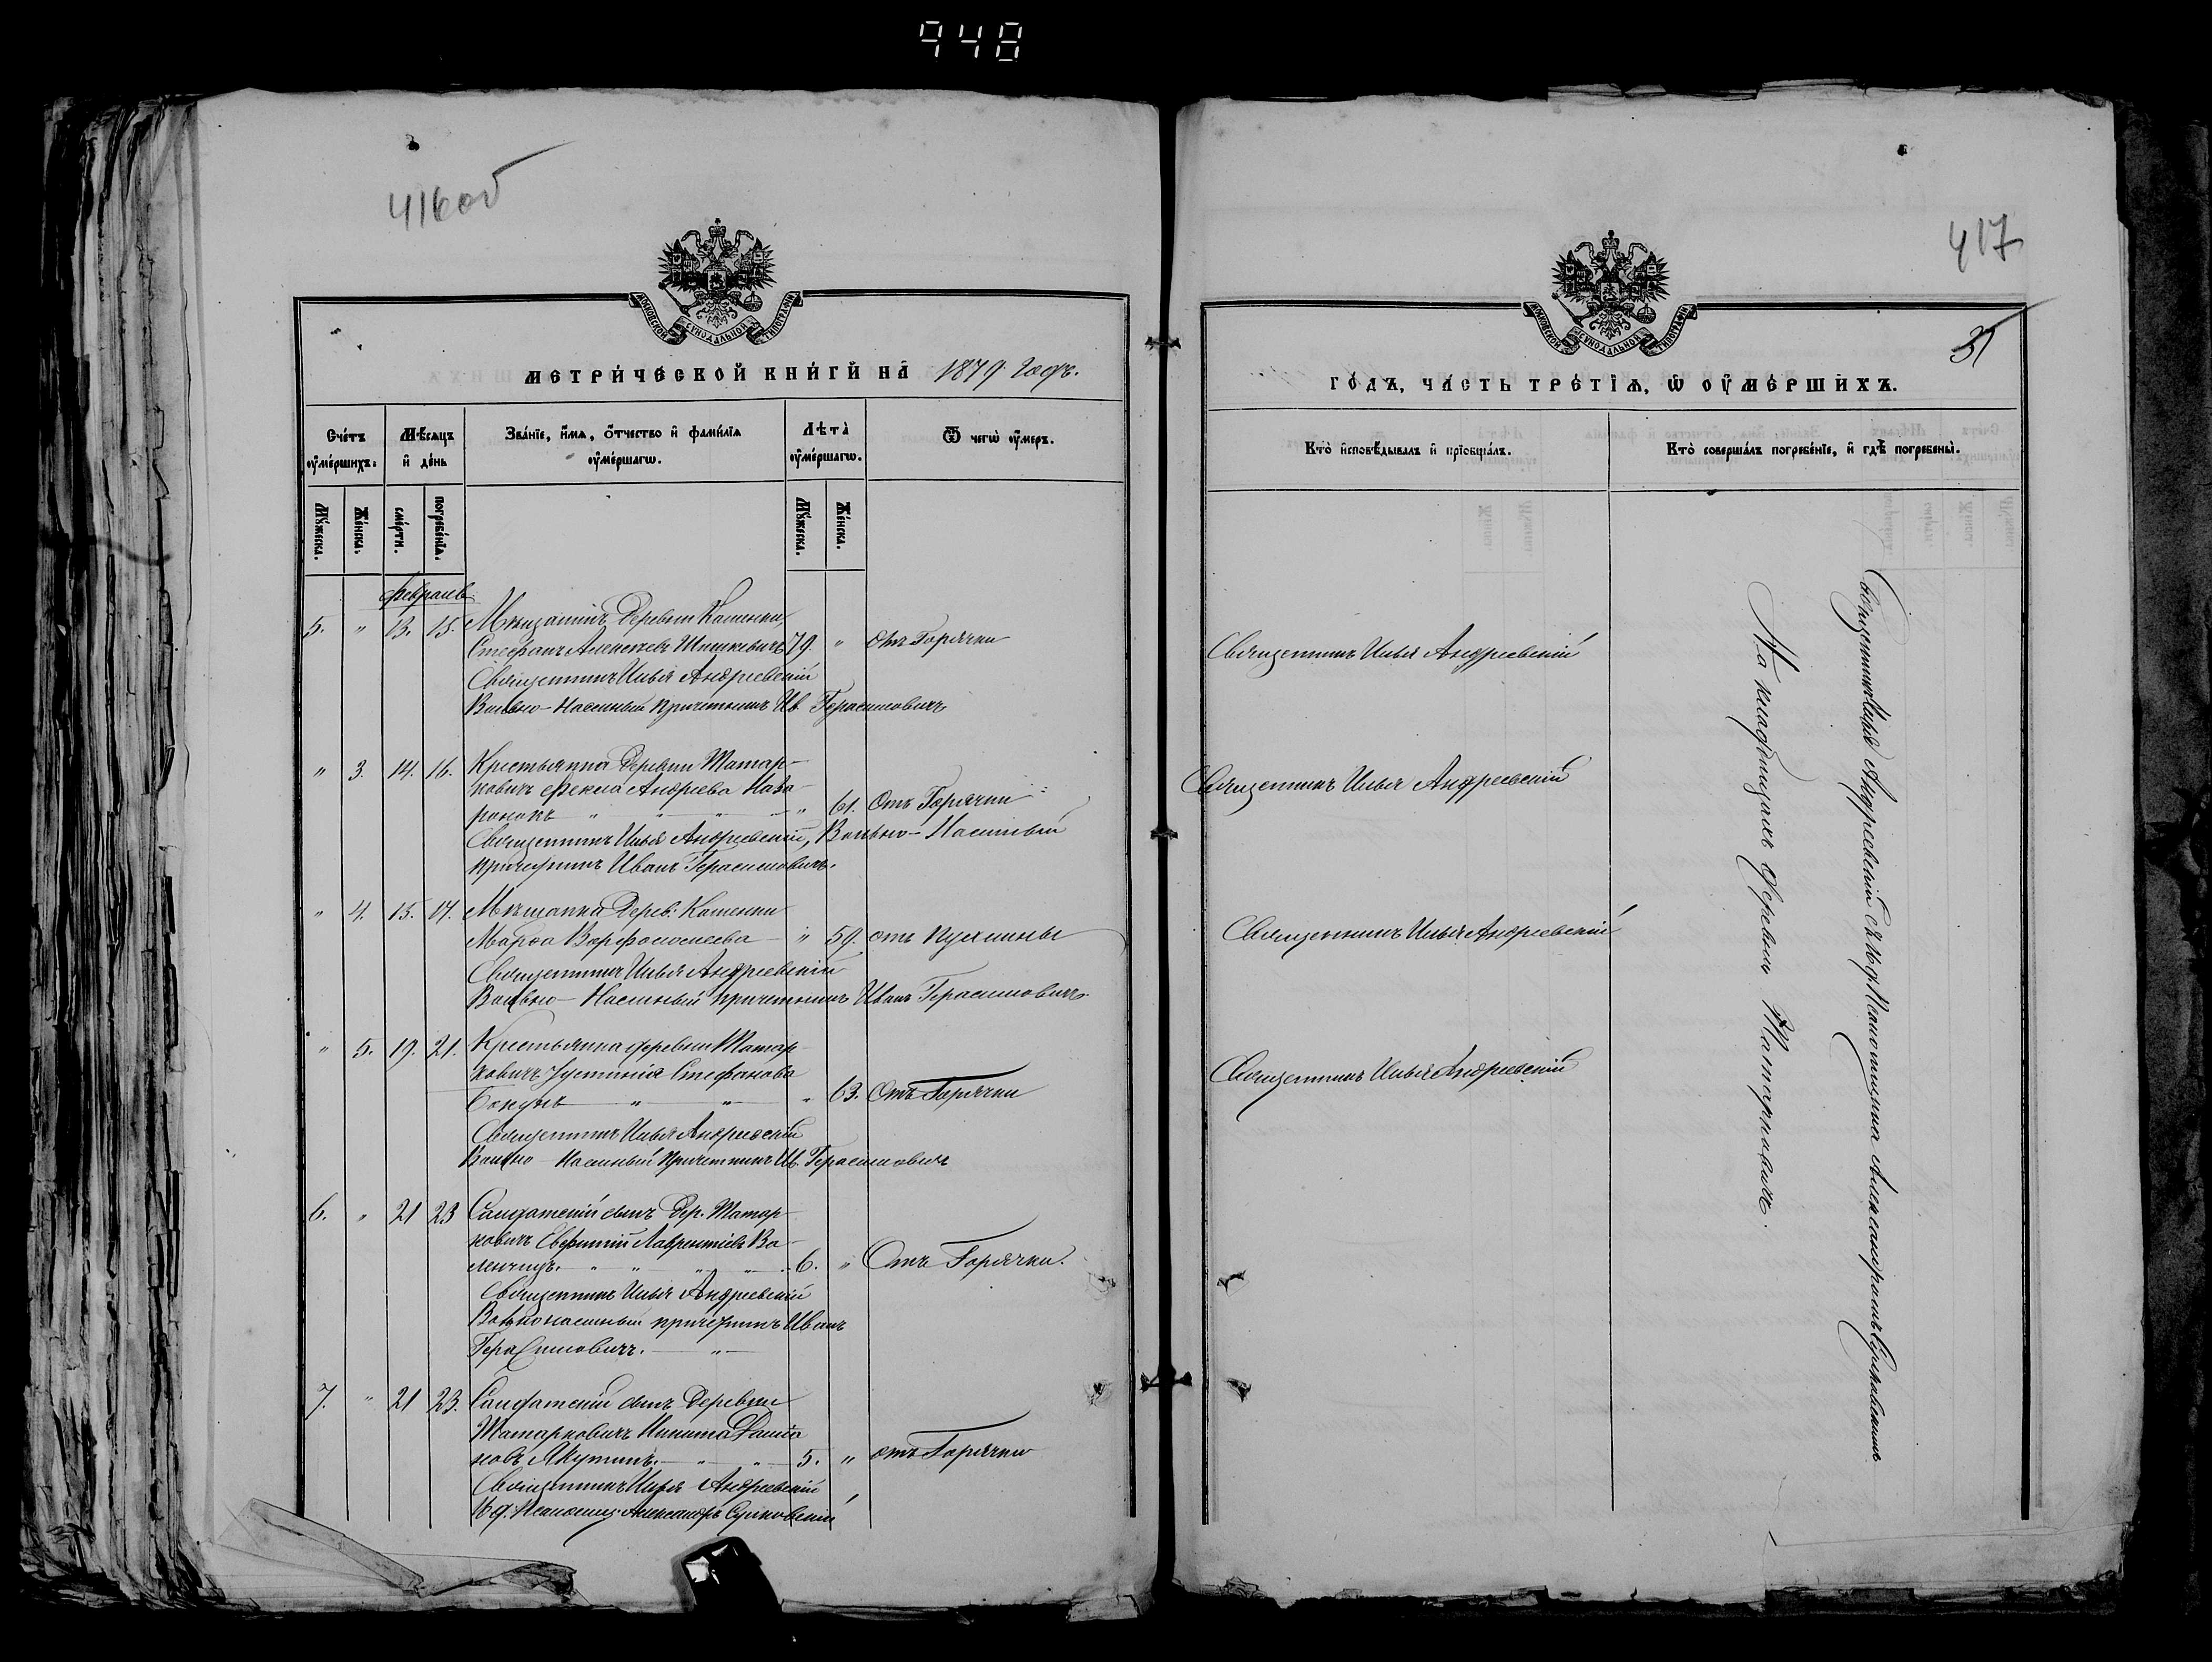 948
416 об
МОСКОВСКОЙ СѴНОДАЛЬНОЙ ТИПОГРАФІИ
МЕТРИЧЕСКОЙ КНИГИ НА 1879 годъ.
Счетъ умершихъ.
Мѣсяцъ и день
Званіе, имя, отчество и фамилія умершаго.
Лѣта умершаго.
Отъ чего умеръ.
Мужеска.
Женска.
смерти.
погребенія.
Мужеска.
Женска.
Февраль
5. " 13. 15. Мѣщанинъ Деревни Каменки,
Стефанъ Алексѣевъ 79. " отъ Горячки
Священникъ Илья Андреевскій
Вольно-Наемный причетникъ Ив. Герасимовичъ
" 3. 14. 16. Крестьянка Деревни Татар-
ковичъ Фекла Андреева Наза-
ронокъ " " " " 61. Отъ Горячки
Священникъ Илья Андреевскій, Вольно-Наемный
причетникъ Иванъ Герасимовичъ.
" 4. 15. 17. Мѣщанка Дерев: Каменки
Марѳа Варфоломеева " 59. отъ Пухлины
Священникъ Илья Андреевскій
Вольно-Наемный причетникъ Иванъ Герасимовичъ
" 5. 19. 21. Крестьянка деревни Татар-
ковичъ Устинія Стефанова
" " " 63. Отъ Горячки
Священникъ Илья Андреевскій
Вольно-Наемный Причетникъ Ив. Герасимовичъ
6. " 21 23 Солдатскій сынъ Дер. Татар-
ковичъ Евфимій Лаврентіевъ Ва-
" " " " 6. " Отъ Горячки.
Священникъ Илья Андреевскій
Вольнонаемный причетникъ Иванъ
Герасимовичъ. "
7. " 21 23. Солдатскій сынъ Деревни
Татарковичъ Никита
новъ Якутикъ. " " 5. " отъ Горячки
Священникъ Илья Андреевскій
И. д. Псаломщ. Александръ
417
МОСКОВСКОЙ СѴНОДАЛЬНОЙ ТИПОГРАФІИ
ГОДЪ, ЧАСТЬ ТРЕТІЯ, О УМЕРШИХЪ.
Кто исповѣдывалъ и пріобщалъ.
Кто совершалъ погребеніе, и гдѣ погребены.
Священникъ Илья Андреевскій
Священникъ Илья Андреевскій
Священникъ Илья Андреевскій
Священникъ Илья Андреевскій
Священникъ Илья Андреевскій съ И. д. Псаломщика Александромъ
На кладбищахъ Деревни Татарковичъ.